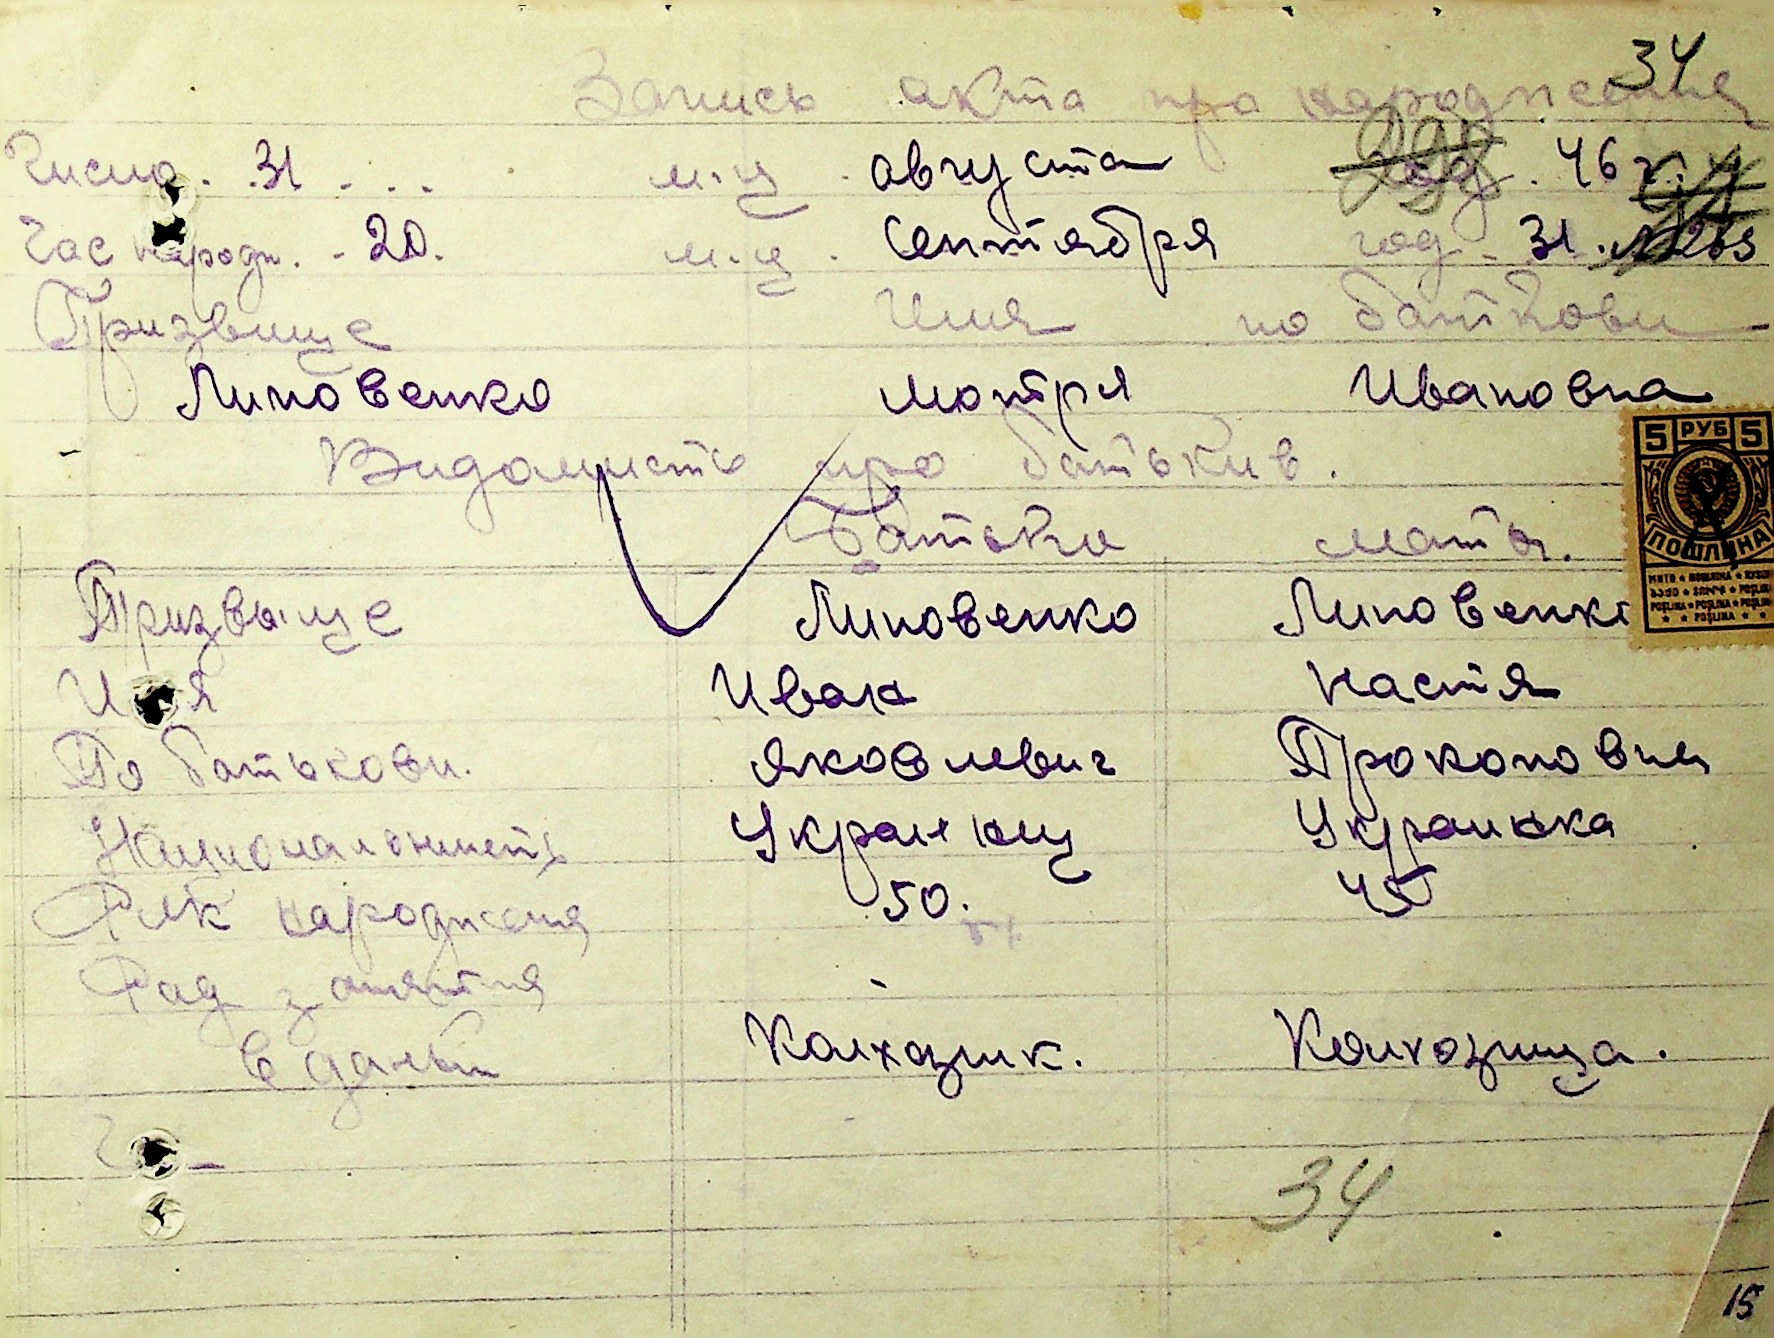 34
Запись акта про народження
Число. 31 м-ц августа 46 г.
Час народж. - 20. м-ц. Сентября год - 31.
Призвище Имя по баткови
Липовенко Мотря Ивановна
Видомисть про батькив.
Батько мать.
Призвыще Липовенко Липовенк
И я Иван Настя
По батькови. Яковлевич Прокоповна
Национальнисть Украинец Украинка
Рик народження 50. 45
Рад заняття
Колхозник. Колхозница.
34
15
5 РУБ 5
ПОШЛИНА